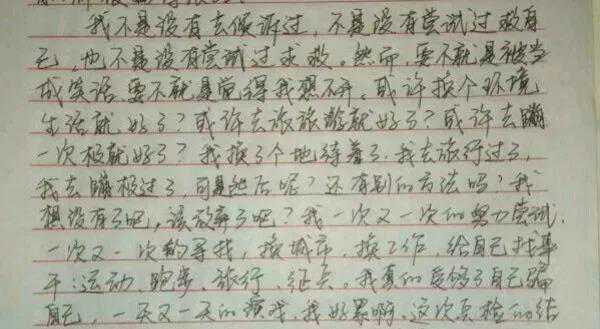 我不是没有去倾诉过，不是没有尝试过救自
己，也不是没有尝试过求救。然而，要不就是被当
成笑话，要不就是觉得我想不开。或许换个环境
生活就好了？或许去旅旅游就好了？或许去蹦
一次极就好了？我换了个地待着了，我去旅行过了，
我去蹦极过了，可是然后呢？还有别的方法吗？我
想没有了吧，该放弃了吧？我一次又一次的努力尝试，
一次又一次的寻找，换城市，换工作，给自己找事
干：运动、跑步、旅行、征兵。我真的受够了自己骗
自己，一天又一天的演戏，我好累啊，这次真检的结